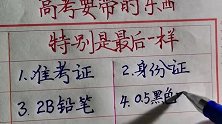 高考要带的东西
特别是最后一样
1.准考证
2.身份证
3.2B铅笔
4.0.5黑色